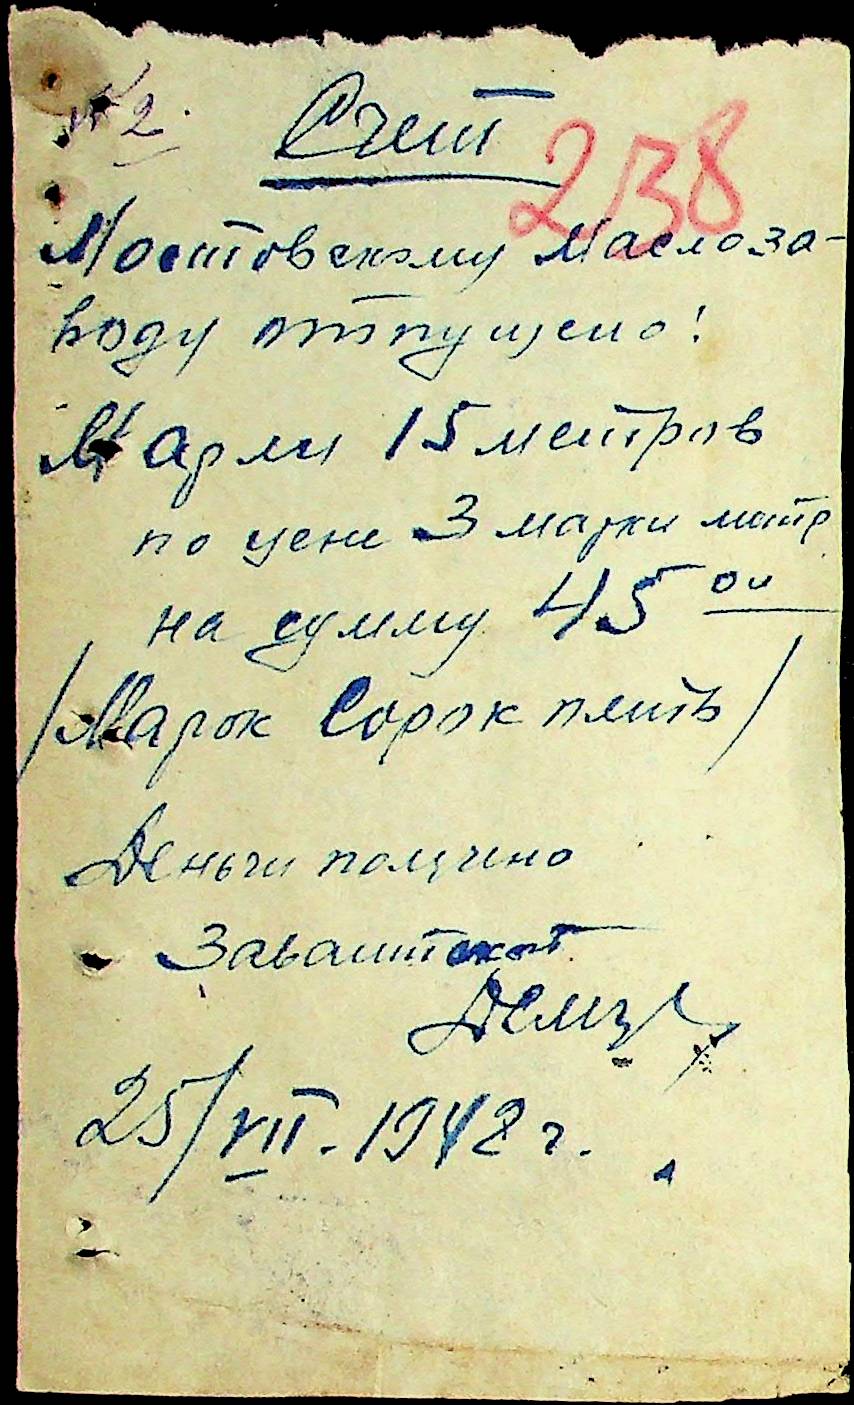 № 2.
Счет
238
Мостовскому Маслоза-
воду отпущено:
Марли 15 метров
по цене 3 марки метр
на сумму 45 00
/Марок Сорок пять/
Деньги получено
25/VII. 1942 г.